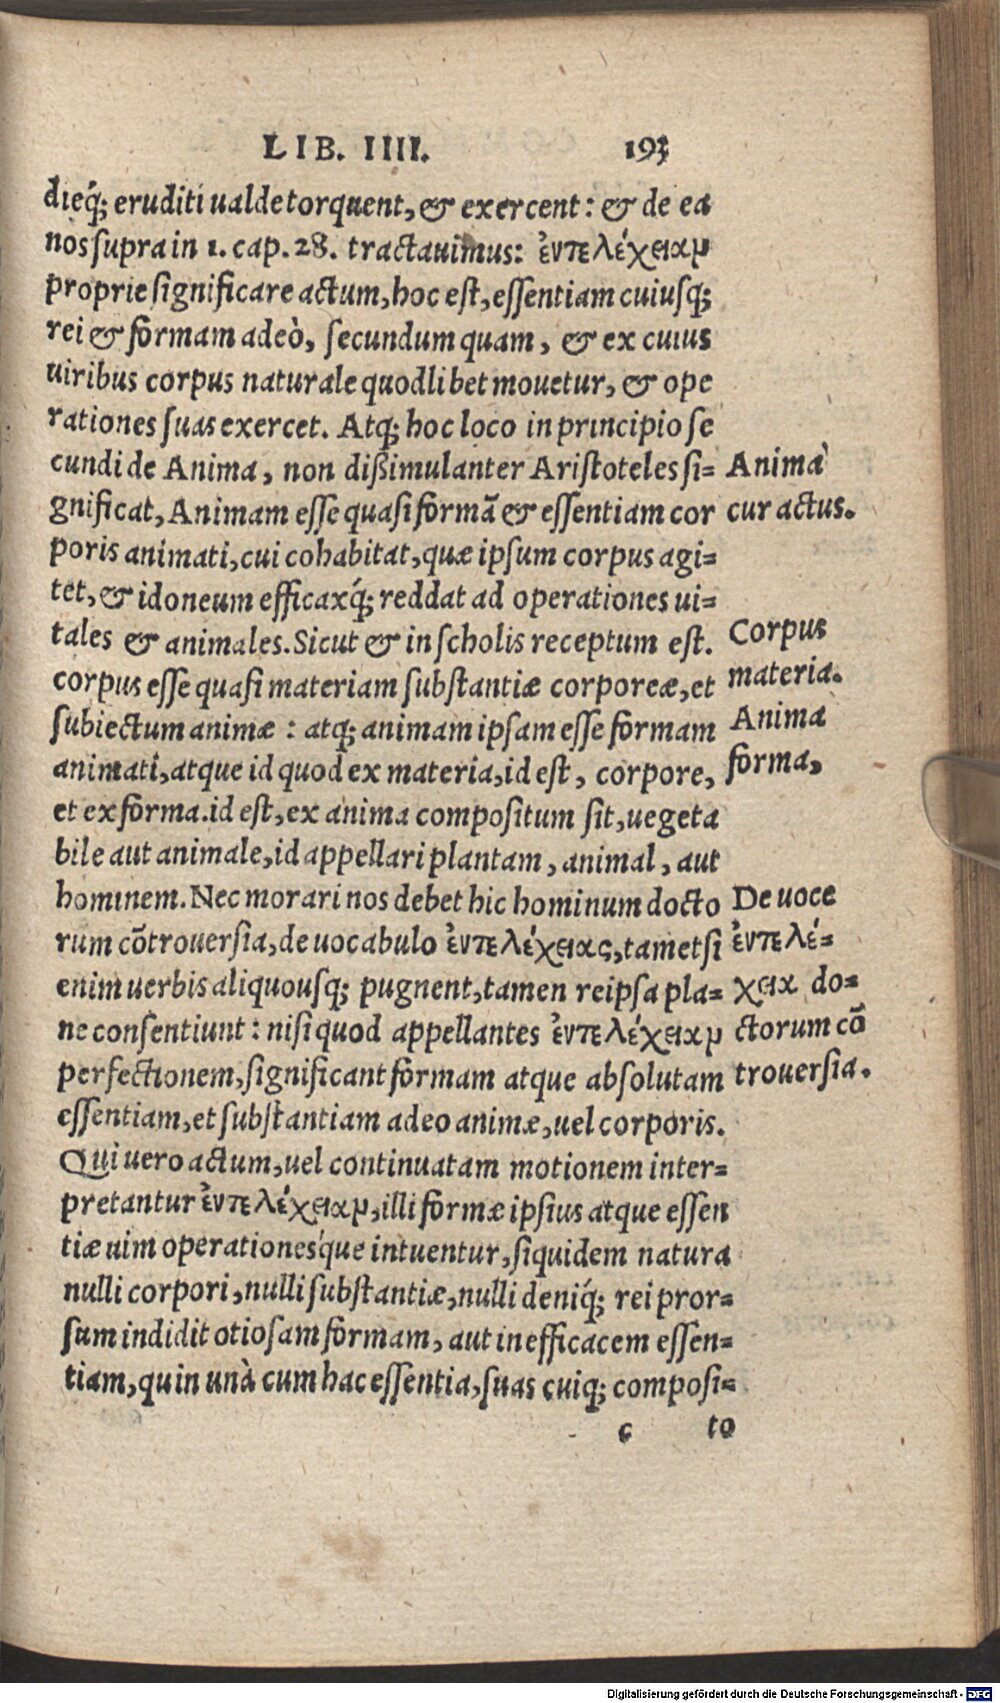 LIB. IIII. 193
dieq́; eruditi ualde torquent, & exercent: & de ea
nos supra in 1. cap. 28. tractauimus: ἐντελέχειαν
proprie significare actum, hoc est, essentiam cuiusq;
rei & formam adeò, secundum quam, & ex cuius
uiribus corpus naturale quodlibet mouetur, & ope
rationes suas exercet. Atq; hoc loco in principio se
cundi de Anima, non dißimulanter Aristoteles si=
gnificat, Animam esse quasi formã & essentiam cor
poris animati, cui cohabitat, quæ ipsum corpus agi=
tet, & idoneum efficaxq́; reddat ad operationes ui=
tales & animales. Sicut & in scholis receptum est.
corpus esse quasi materiam substantiæ corporeæ, et
subiectum animæ: atq; animam ipsam esse formam
animati, atque id quod ex materia, id est, corpore,
et ex forma. id est, ex anima compositum sit, uegeta
bile aut animale, id appellari plantam, animal, aut
hominem. Nec morari nos debet hic hominum docto
rum cõtrouersia, de uocabulo ἐντελέχειας, tametsi
enim uerbis aliquousq; pugnent, tamen reipsa pla=
ne consentiunt: nisi quod appellantes ἐντελέχειαν
perfectionem, significant formam atque absolutam
essentiam, et substantiam adeo animæ, uel corporis.
Qui uero actum, uel continuatam motionem inter=
pretantur ἐντελέχειαν, illi formæ ipsius atque essen
tiæ uim operationes´que intuentur, siquidem natura
nulli corpori, nulli substantiæ, nulli deniq́; rei pror=
sum indidit otiosam formam, aut inefficacem essen=
tiam, quin unà cum hac essentia, suas cuiq; composi=
c to
Anima
cur actus.
Corpus
materia.
Anima
forma,
De uoce
ἐντελέ=
χεια do=
ctorum cõ
trouersia.
Digitalisierung gefördert durch die Deutsche Forschungsgemeinschaft - DFG